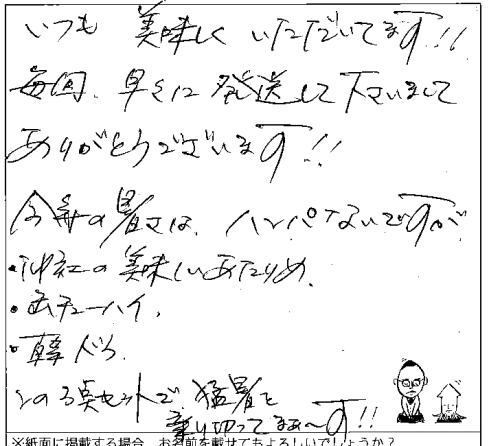 いつも 美味しく いただいてます!!
毎回、早々に発送して下さいまして
ありがとうございます!!
今年の暑さは、ハンパないですが
・沖縄の美味しいあたりめ、
・缶チューハイ、
・韓ドラ
この3点セットで、猛暑を
乗り切ってまぁ〜す!!
※紙面に掲載する場合、お名前を載せてもよろしいでしょうか?